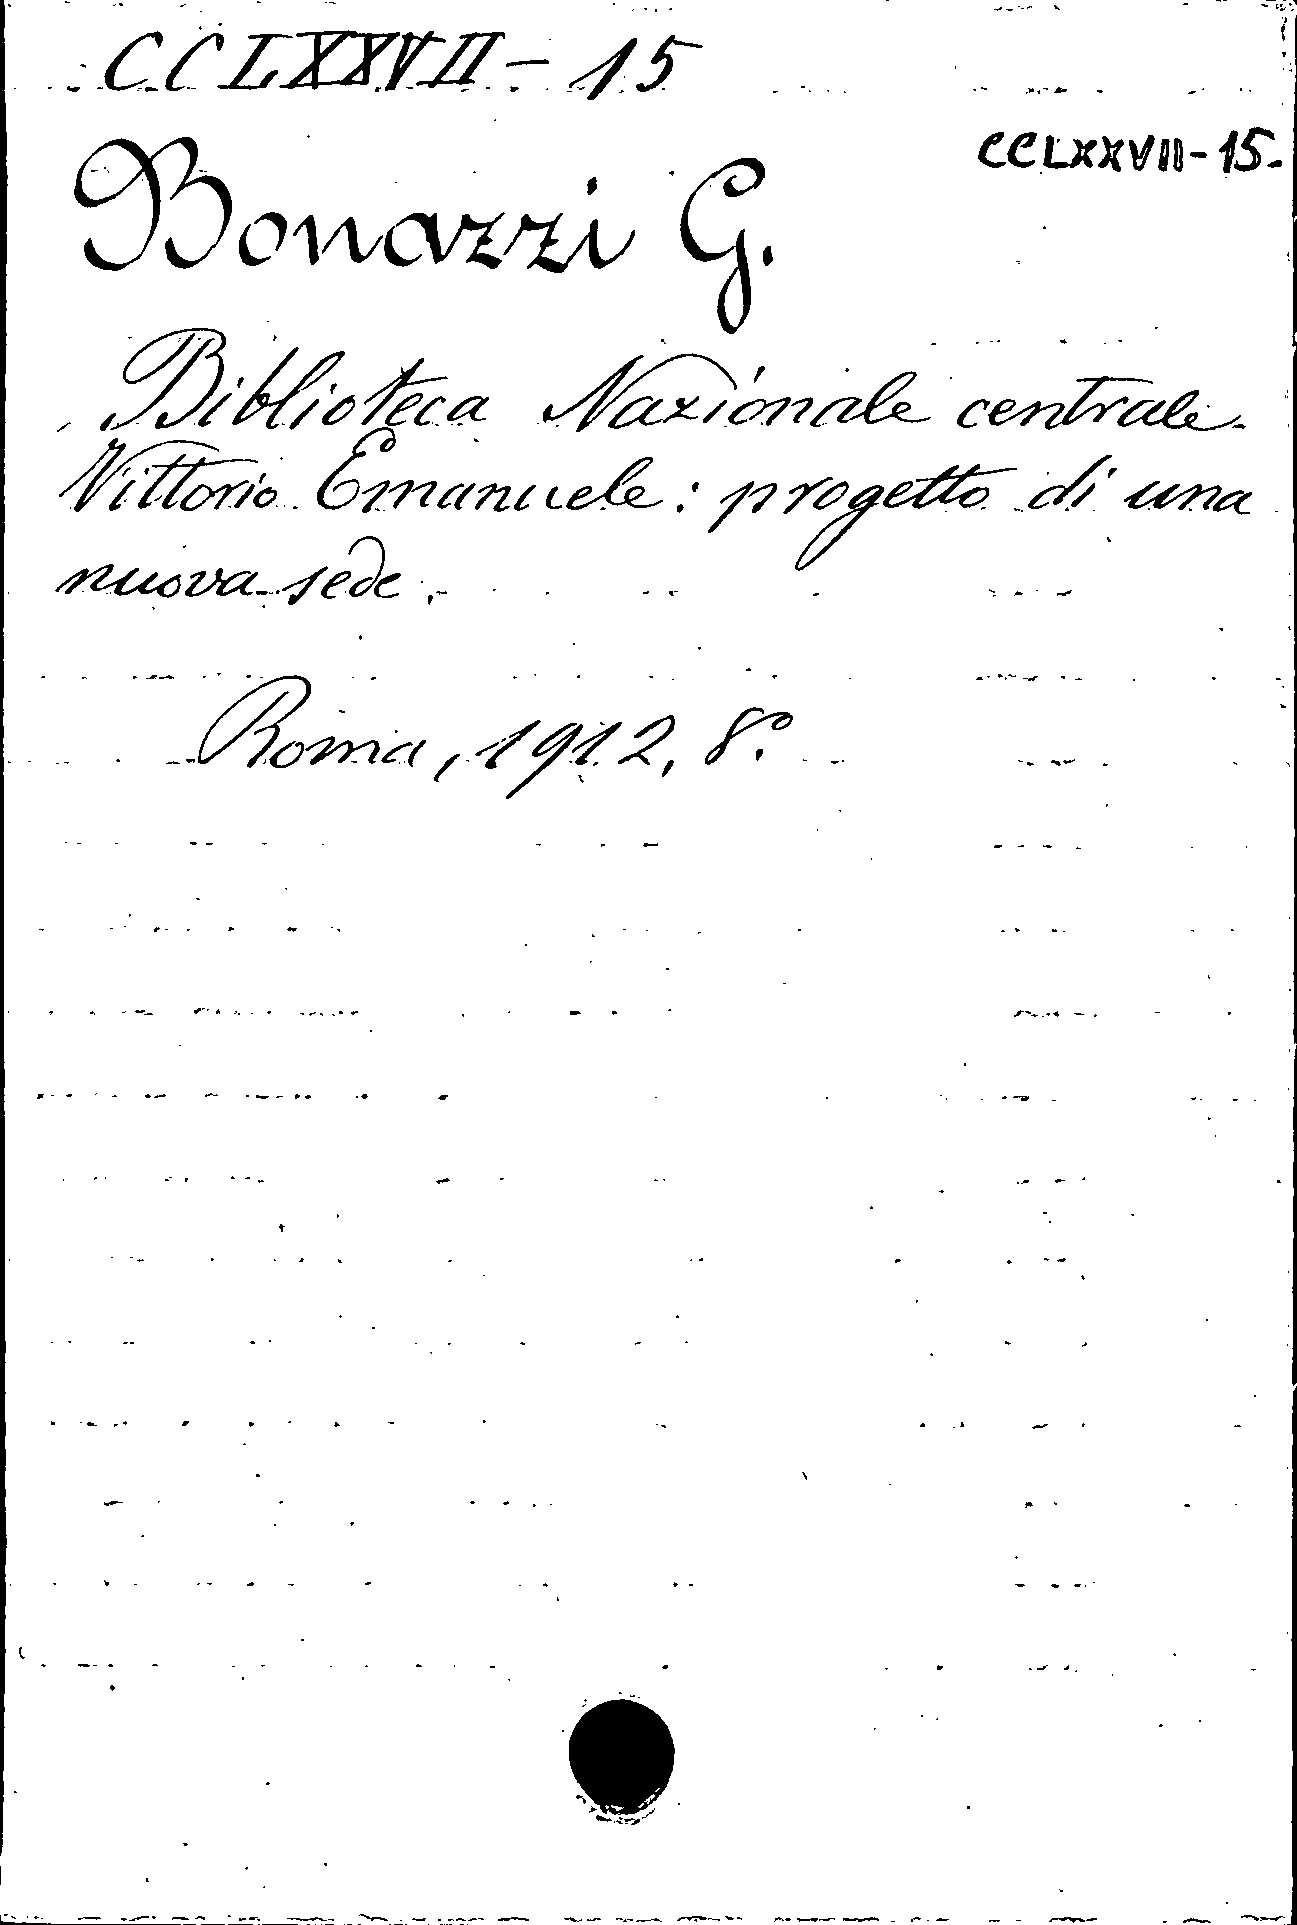 CCLXXVII - 15
CCLXXVII - 15.
Bonazzi G.
Biblioteca Nazionale centrale
Vittorio Emanuele: progetto di una
nuova sede.
Roma, 1912, 8.°